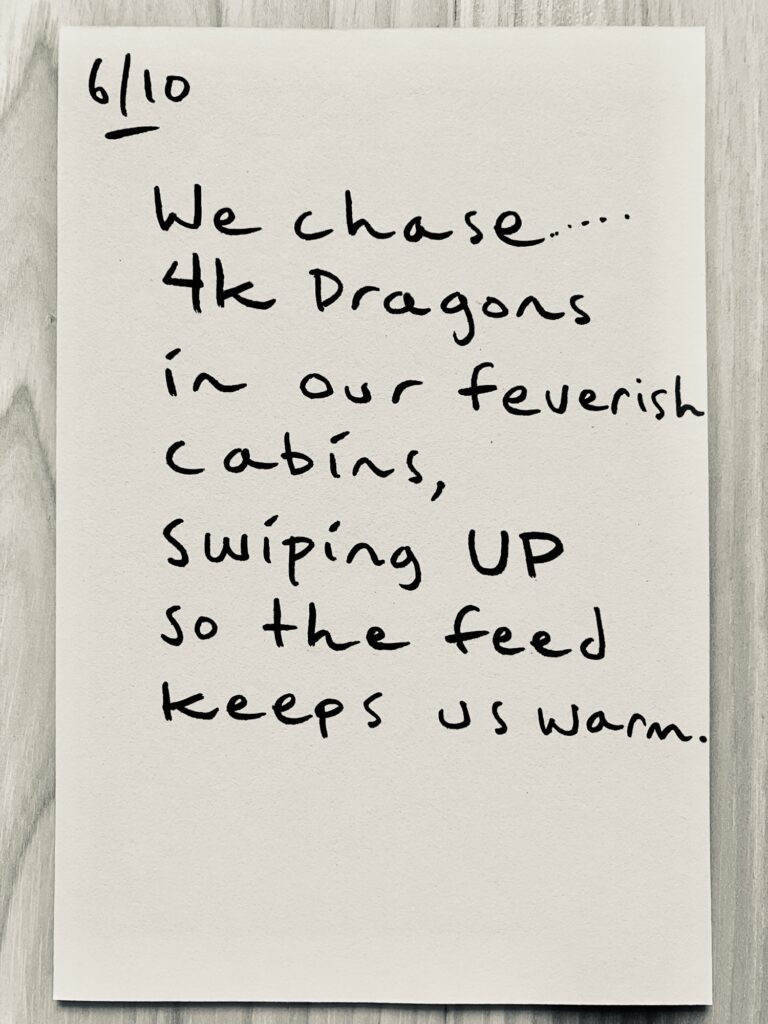 6/10
We chase.....
4k Dragons
in our feverish
cabins,
swiping UP
so the feed
keeps us warm.